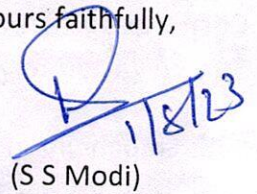 ours faithfully,
1/8/23
(S S Modi)